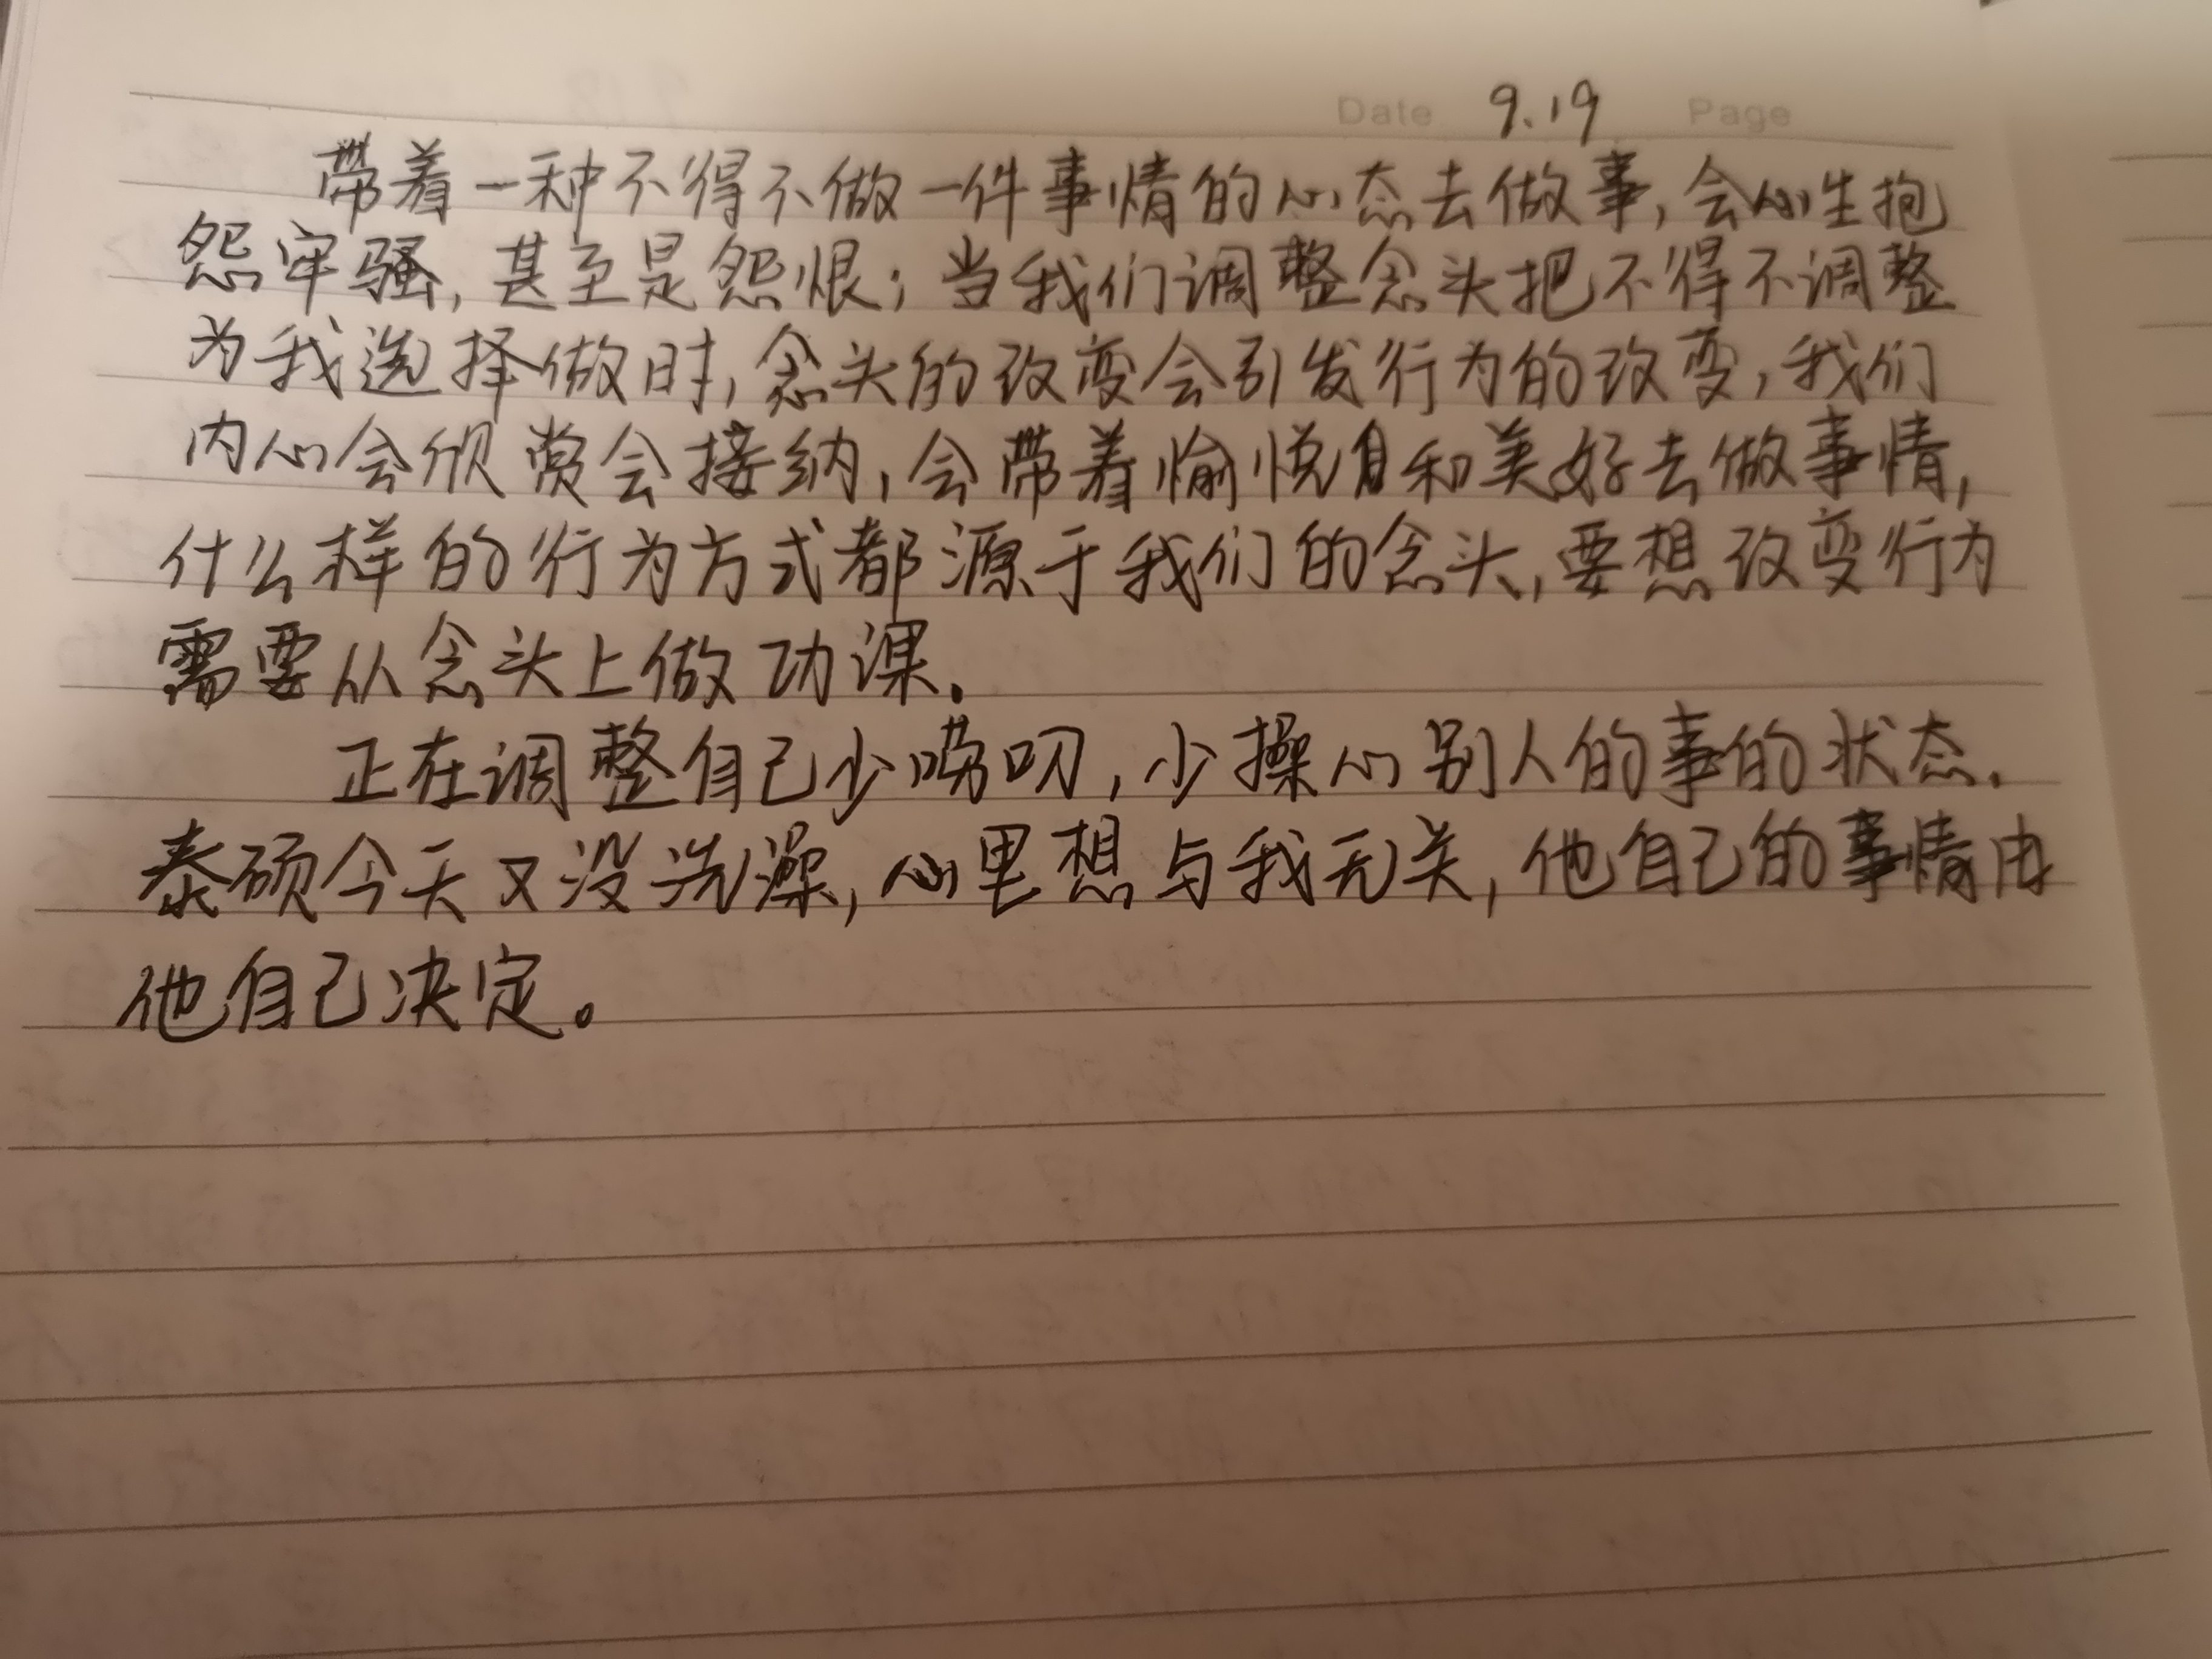 Date 9.19 Page
带着一种不得不做一件事情的心态去做事,会心生抱
怨牢骚,甚至是怨恨;当我们调整念头把不得不调整
为我选择做时,念头的改变会引发行为的改变,我们
内心会欣赏会接纳,会带着愉悦和美好去做事情,
什么样的行为方式都源于我们的念头,要想改变行为
需要从念头上做功课.
正在调整自己少唠叨,少操心别人的事的状态.
泰硕今天又没洗澡,心里想与我无关,他自己的事情由
他自己决定。